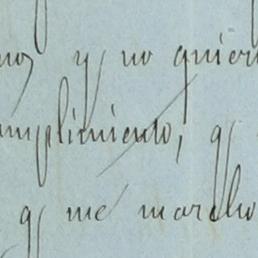 y no quier
umplimiento, y
y me marcho